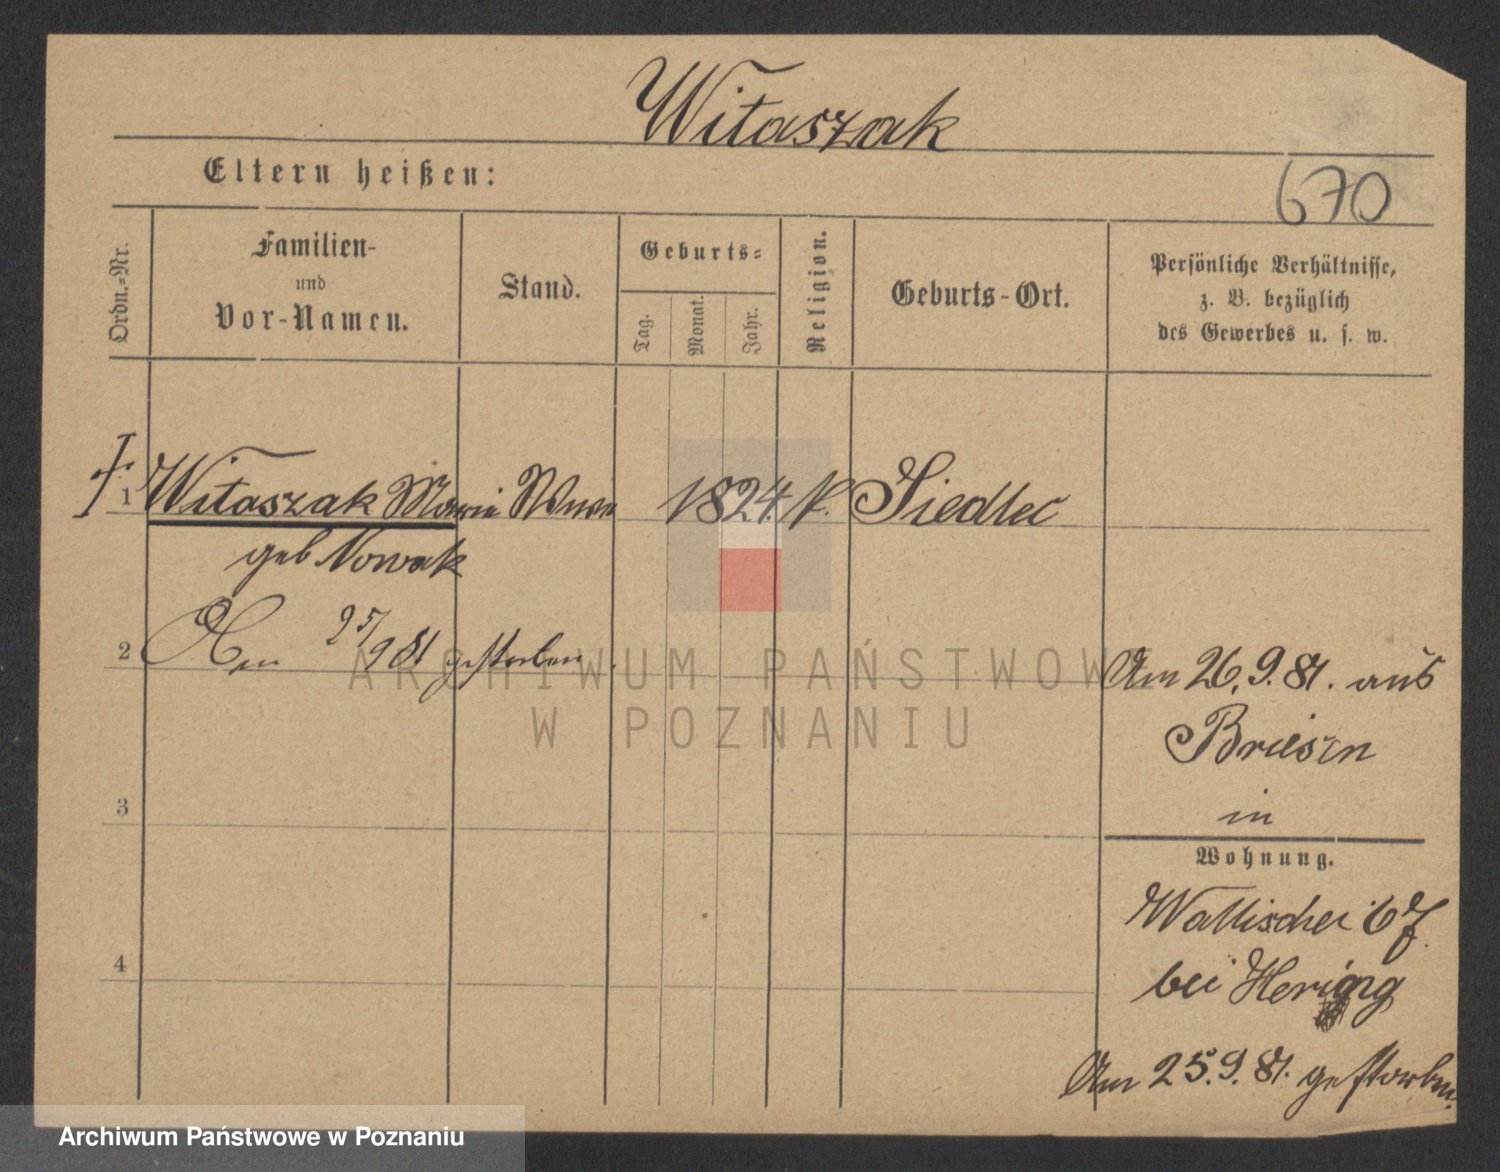 Witaszak
Eltern heißen:
670
Ordn.-Nr.
Familien-
und
Vor-Namen.
Stand.
Geburts-
Tag.
Monat.
Jahr.
Religion.
Geburts-Ort.
Persönliche Verhältnisse,
z. B. bezüglich
des Gewerbes u. s. w.
1 Witaszak Marie Wwe 1824. k. Siedlec
geb Nowak
2 Am 25/9 81 gestorben.
Am 26.9.81. aus
Briesen
in
3
Wohnung.
Wallischei 67.
bei
4
Am 25.9.81. gestorben.
ARCHIWUM PAŃSTWOWE
W POZNANIU
Archiwum Państwowe w Poznaniu